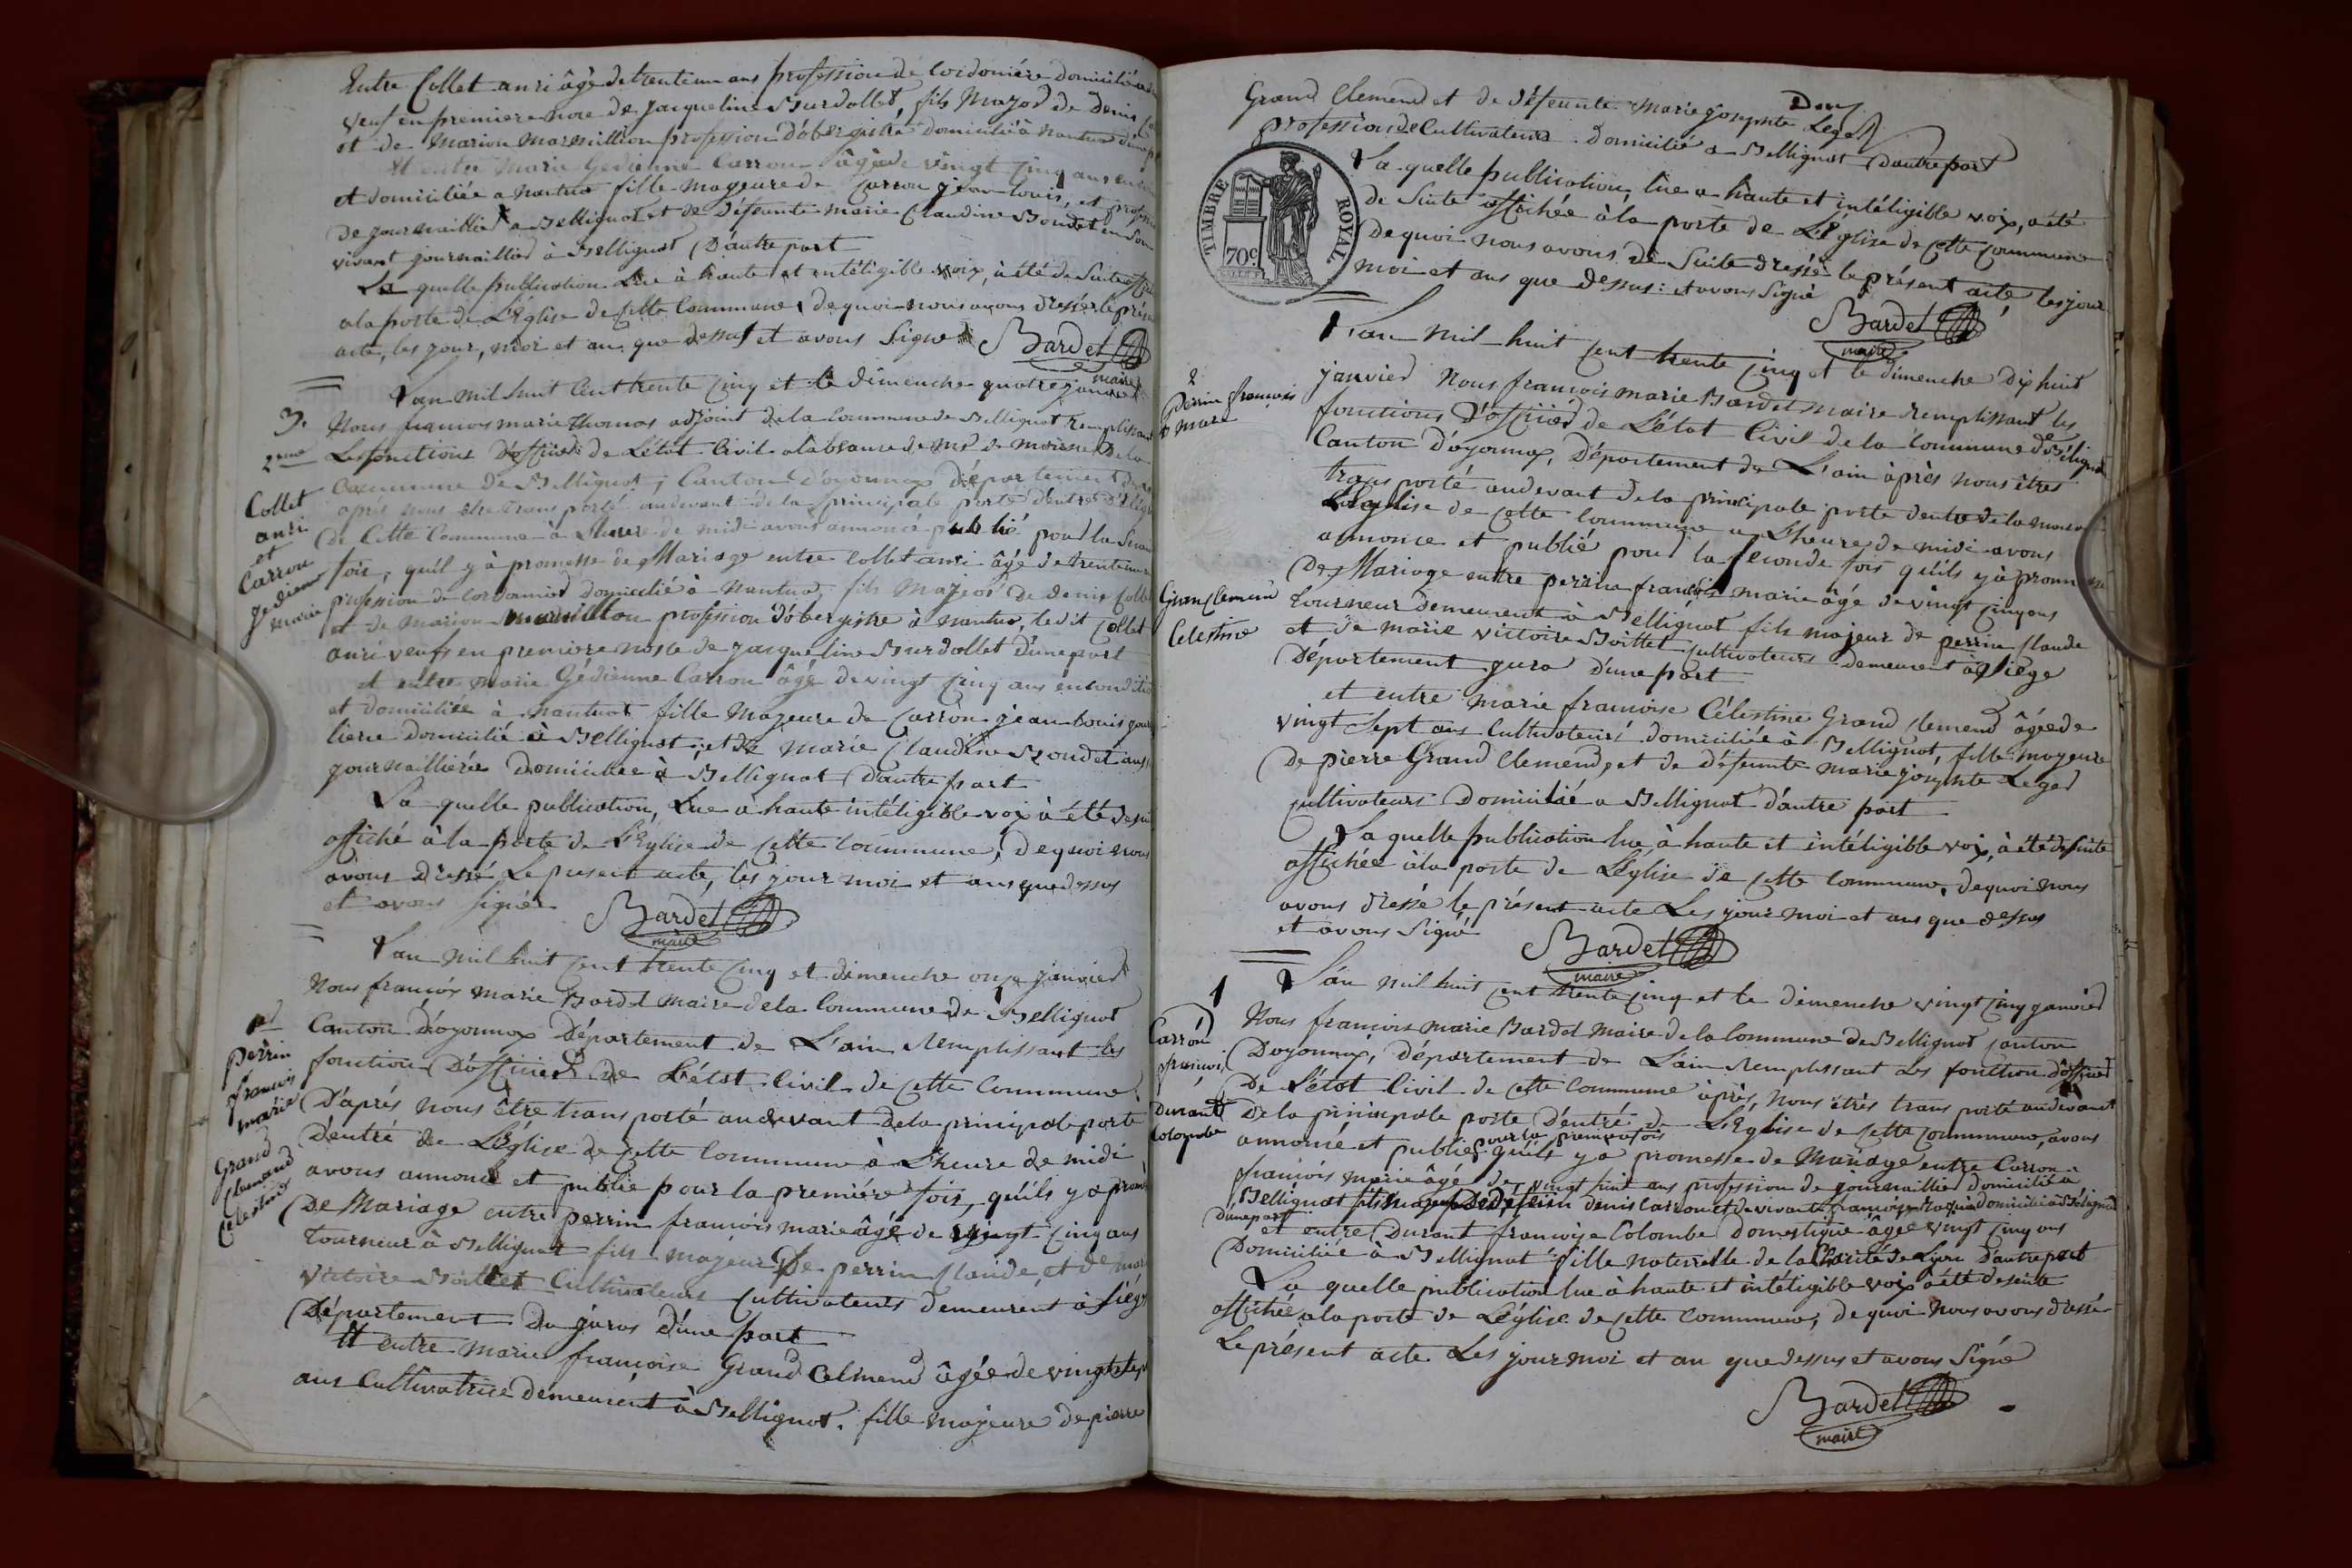 Entre Collet anri âgé de trente un ans profession de cordoniére domicilié
veuf en premiere noce de jacqueline Burdollet, fils Majos de denis
et de Marion Marmillion profession D'obergistre domicilié à nantua d'une
Et entre Marie Gedienne Carron âgée de vingt cinq ans en
et domiciliée a nantua fille mageure de Carron jean louis, et profession
de journaillier a Bellignat et de défeunte marie Claudine Bondet en son
vivant journaillier à Bellignat D'autre part
La quelle publication Lue à haute et intéligible voix, à été de Suite
a la porte de L'Eglise de cette Commune, de quoi nous avons dressée le
acte, les jour, moi et an que dessus et avons Signé Bardet
maire
L'an mil huit Cent trente cinq et le dimenche quatre janvier
3. Nous francois marie Thomas adjoint de la Commune de Bellignat remplissant
2eme Les fonctions D'officier de L'état Civil a l'absance de Mr de Maire De la
Commune de Bellignat, Canton D'oyonnax Département de
Collet
anri
et
Carron
Jedienne
marie
après nous être transporté audevant de la principale porte d'entré
de Cette Commune à L'heure de midi avons annoncé publié pour la
fois, qu'il y à promesse de Mariage entre Collet anri âgé de trente un
profession de cordonnier domicilié à Nantua, fils Majeor De denis Collet
et de Marion Marmillon profession d'obergistre à nantua, le dit Collet
anri veufs en premiere nosse de jacqueline Burdollet d'une part
et entre marie Gédienne Carron âgé de vingt cinq ans en condition
et domiciliée à nantua fille Mageure de Carron jean louis
liere domicilié à Bellignat, et de Marie Claudine Bondet aussi
journailliére Domiciliée à Bellignat D'autre part
La quelle publication, Lue à haute intéligible voix à été de
affiché à la porte de L'Eglise de cette Commune, de quoi nous
avons dressé Le present acte, les jour moi et ans que dessus
et avons Signé Bardet
maire
L'an mil huit cent trente cinq et dimenche onze janvier
Nous francois Marie Bardet Maire de la Commune de Bellignat
Canton D'oyonnax Département de L'ain Remplissant les
perrin
francois
marie
Grand
Clemand
Celestine
fonction D'officier de L'état Civil de cette Commune
D'après nous être transporté audevant de la principale porte
D'entré de L'Eglise de cette Commune à L'heure de midi
avons annoncé et publié pour la premiére fois, qu'ils y a
De Mariage entre perrin francois marie âgé de vingt cinq ans
tourneur à Bellignat fils majeur De perrin Claude, et de
Victoire Boillet Cultivateurs Cultivateurs demeurent à
Département du jura d'une part
Et entre Marie francoise Grand Celmend âgée de vingt sept
ans Cultivatrice demeurent à Bellignat. fille majeure de pierre
Grand Clemend et de défeunte Marie josephte Leges
profession de Cultivateurs Domicilié a Bellignat D'autre part
TIMBRE ROYAL
70c
La quelle publication, lue a haute et intéligible voix, a été
de Suite affichée à la porte de L'Eglise de Cette Commune
De quoi nous avons de Suite dressé le présent acte, les jour
moi et ans que dessus: et avons Signé
Bardet
maire
L'an mil huit Cent trente cinq et le dimenche Dix huit
2
perrin francois
marie
janvier Nous francois Marie Bardet maire remplissant les
fonctions D'officier de L'état Civil de la Commune de
Canton D'oyonnax, Département de L'ain après nous êtres
transporté audevant de la principale porte
L'Eglise de cette Commune a L'heure de midi avons
annonce et publié pour la seconde fois qu'ils y à
De Mariage entre perrin francois marie âgé de vingt cinq ans
Gran Clemend
Celestine
tourneur demeurent à Bellignat fils majeur de perrin Claude
et de marie victoire Boillet Cultivateurs demeurent à
Département jura D'une part
et entre Marie francoise Célestine Grand Clemend âgée de
vingt Sept ans Cultivateurs domiciliée à Bellignat, fille mageure
De pierre Grand Clemend, et de défeunte Marie josephte Leges
Cultivateurs Domicilié a Bellignat d'autre part
La quelle publication lue, à haute et intéligible voix, à été de suite
affichée à la porte de L'Eglise de Cette Commune, de quoi nous
avons dressé le présent acte Les jour moi et ans que dessus
et avons Signé Bardet
maire
1 L'an mil huit cent trente cinq et le dimenche vingt cinq janvier
Carron
francoi
Durant
Colombe
Nous francois marie Bardet Maire de la Commune de Bellignat Canton
D'oyonnax, Département de L'ain Remplissant Les fonction D'officier
De L'état Civil de cette Commune après, nous êtres transporté audevant
De la principale porte D'entré de L'Eglise de Cette Commune, avons
pour la premiere fois
annoncé et publier qu'ils y a promesse de Mariage entre Carron
francois marie âgé de vingt huit ans profession de journaillier domicilié a
Bellignat fils denis Carron et de vivante francoise domiciliée à
D'une part
et entre Durant francoise Colombe Domestique âgée vingt cinq ans
Domiciliée à Bellignat fille naturelle de la Charité de D'autre part
La quelle publication lue à haute et intéligible voix à été de suite
affichée a la porte de L'église de Cette Commune, de quoi nous avons dressé
Le présent acte Les jour moi et an que dessus et avons Signé
Bardet
maire